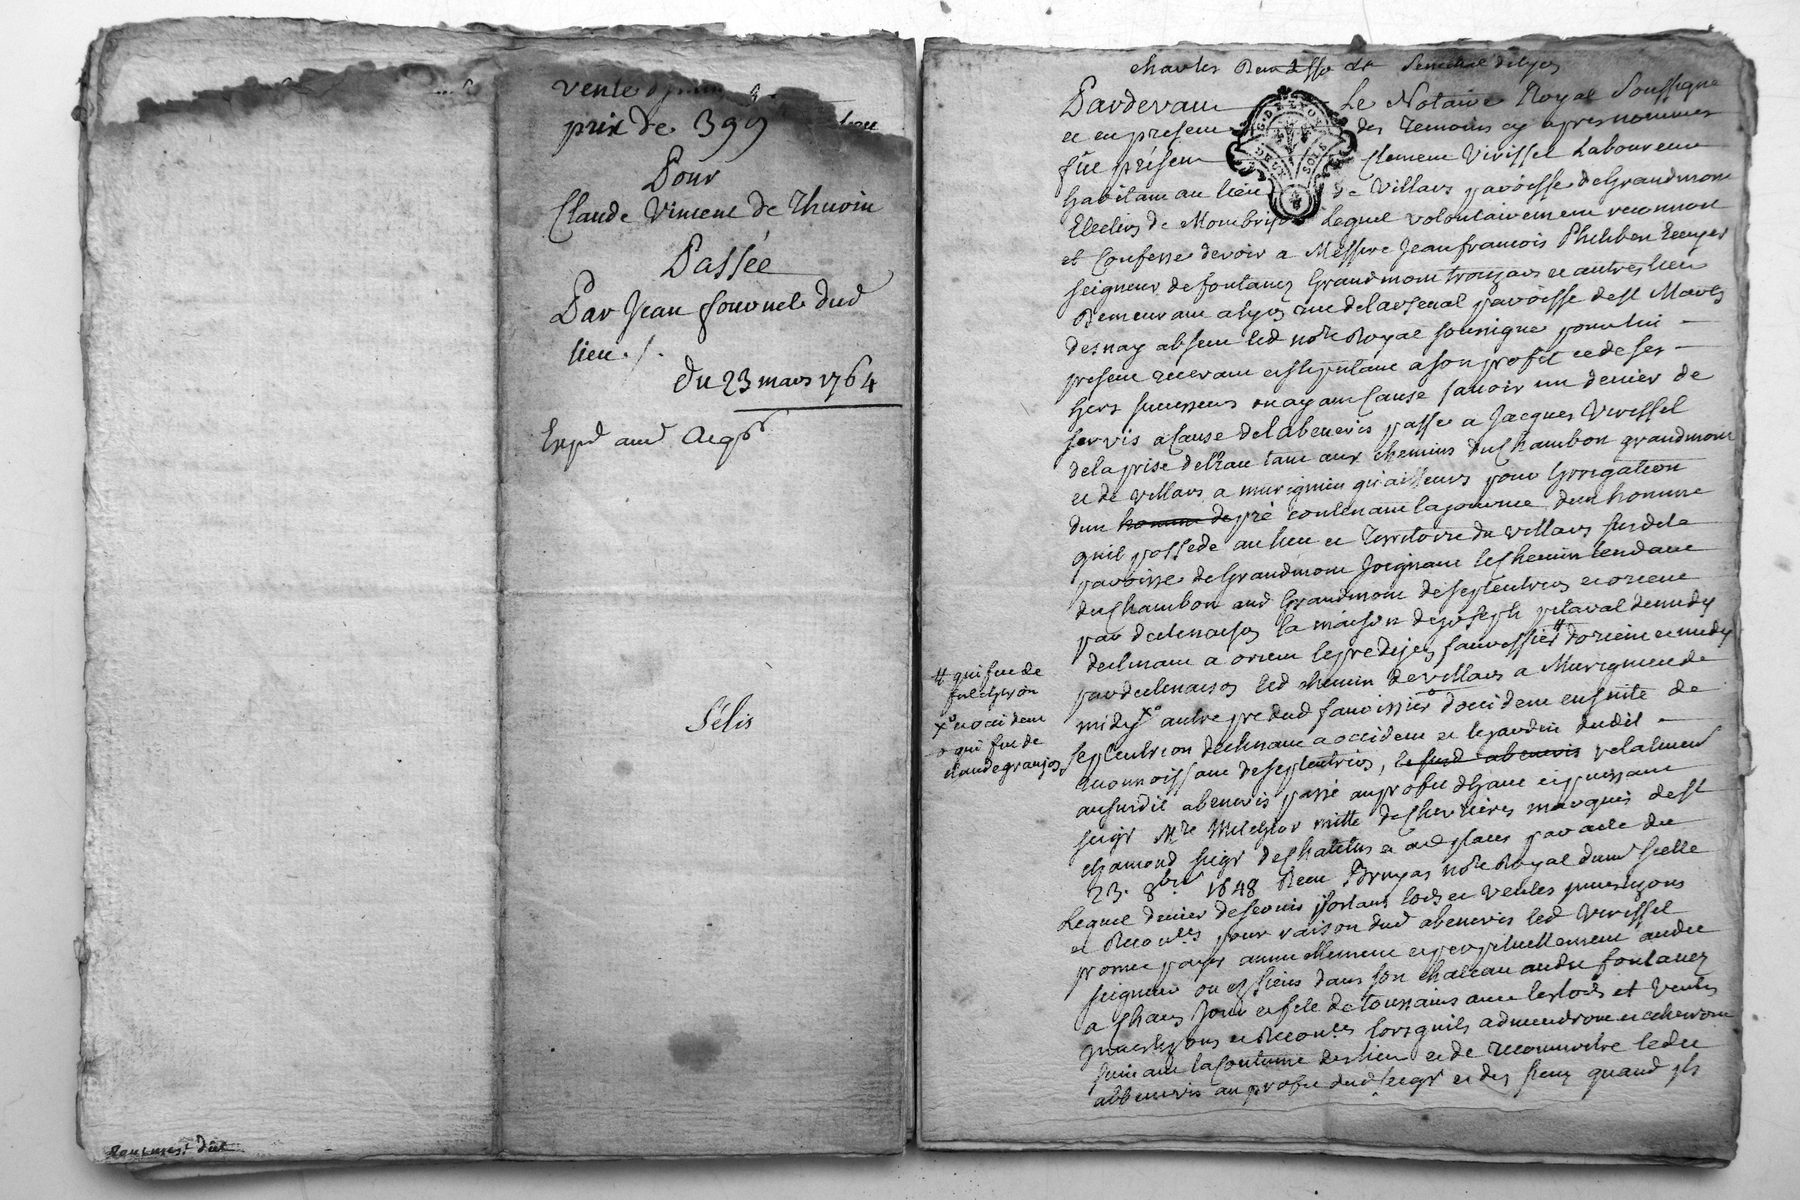 vente
prix de 399
Pour
Claude Vincent de Thuoin
Passée
Par Jean fournel dud
lieu ./.
du 23 mars 1764
Exp.d aud Acq.r
Sélis
Pardevant Le Notaire Royal Soussigne
et en presence des temoins cy apres nommes
fût présent Clement Virissel Laboureur
habitant au lieu de Villars paroisse de Grandmont
Election de Mombrison Lequel volontairement reconnoit
et Confesse devoir a Messire Jean francois Philibert Ecuyer
seigneur de fontanez Grandmont et autres lieux
demeurant a lyon rue de larsenal paroisse de st Martin
desnay absent led no.re Royal soussigne pour lui
present recevant et stipulant a son profit et de ses
hers successeurs ou ayant Cause savoir un denier de
servis a Cause de labenevis passe a Jacques Virissel
de la prise de leau tant aux chemins du Chambon grandmont
et de villars a murignieu qu'ailleurs pour Lirrigation
dun pré contenant la journée dun homme
quil possede au lieu et Territoire du Villars susdite
paroisse de Grandmont Joignant le chemin tendant
du Chambon aud Grandmont de septentrion et orient
par declinaison la maison de joseph pitaval de midy
declinant a orient le pre de jean fauvessier # dorient et midy
par declinaison led chemin de villars a Murignieu de
midy x° autre pre dud fauvissier ° doccident ensuite de
septentrion declinant a occident et le jardin dudit
reconnoissant de septentrion, relativement
au susdit abenevis passé au profit dhaut et puissant
seigr M.re Melchior mitte de chevrières marquis de st
chamond seigr de chatelus et aud places par acte du
23. 8bre 1648 Receu Bruyas no.re Royal dument scelle
Lequel denier de servis portant lods et ventes
pour raison dud abenevis led Virissel
promet payer annuellement et perpetuellement audit
seigneur ou es siens dans son chateau audit fontanez
a Chaque Jour et fete de toussaints avec les lods et ventes
lorsquils adviendront et echerront
suivant la Coutume des lieux et de reconnoitre ledit
abbenevis au profit dud seigr et des siens quand ils
# qui fut de
x° et occident
° qui fut de
claude granjon